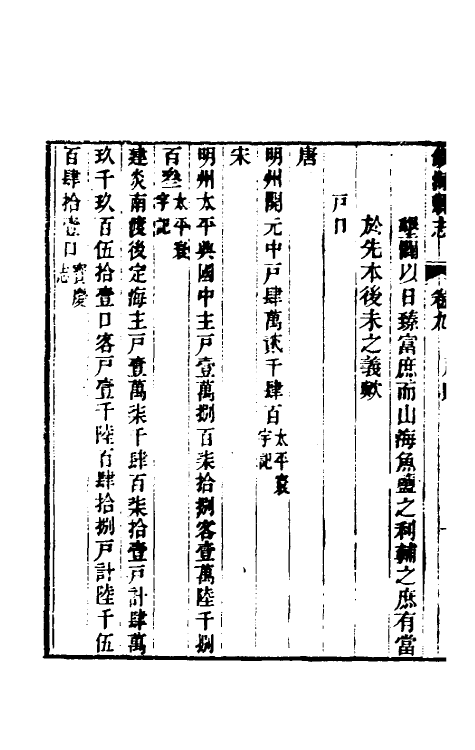 鎮海縣志 卷九
墾闢以日臻富庶而山海魚鹽之利輔之庶有當
於先本後末之義歟
戶口
唐
明州開元中戶肆萬貳千肆百太平寰宇記
宋
明州太平興國中主戶壹萬捌百柒拾捌客壹萬陸千捌
百叁太平寰宇記
建炎南渡後定海主戶壹萬柒千肆百柒拾壹戶計肆萬
玖千玖百伍拾壹口客戶壹千陸百肆拾捌戶計陸千伍
百肆拾壹口寶慶志